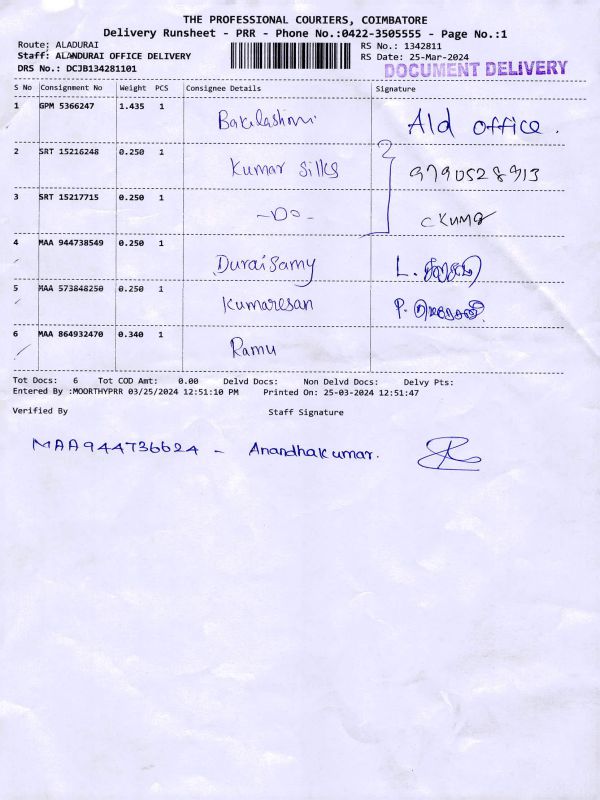 THE PROFESSIONAL COURIERS, COIMBATORE
Delivery Runsheet - PRR - Phone No.:0422-3505555 - Page No.:1
Route: ALADURAI RS No.: 1342811
Staff: ALANDURAI OFFICE DELIVERY RS Date: 25-Mar-2024
DRS No.: DCJB134281101 DOCUMENT DELIVERY
S No Consignment No Weight PCS Consignee Details Signature
1 GPM 5366247 1.435 1 Ald office.
2 SRT 15216248 0.250 1 Kumar Silks 9790528913
3 SRT 15217715 0.250 1 -Do-
4 MAA 944738549 0.250 1 Duraisamy L.
5 MAA 573848250 0.250 1 Kumaresan P.
6 MAA 864932470 0.340 1 Ramu
Tot Docs: 6 Tot COD Amt: 0.00 Delvd Docs: Non Delvd Docs: Delvy Pts:
Entered By :MOORTHYPRR 03/25/2024 12:51:10 PM Printed On: 25-03-2024 12:51:47
Verified By Staff Signature
MAA944736624 - Anandhakumar.